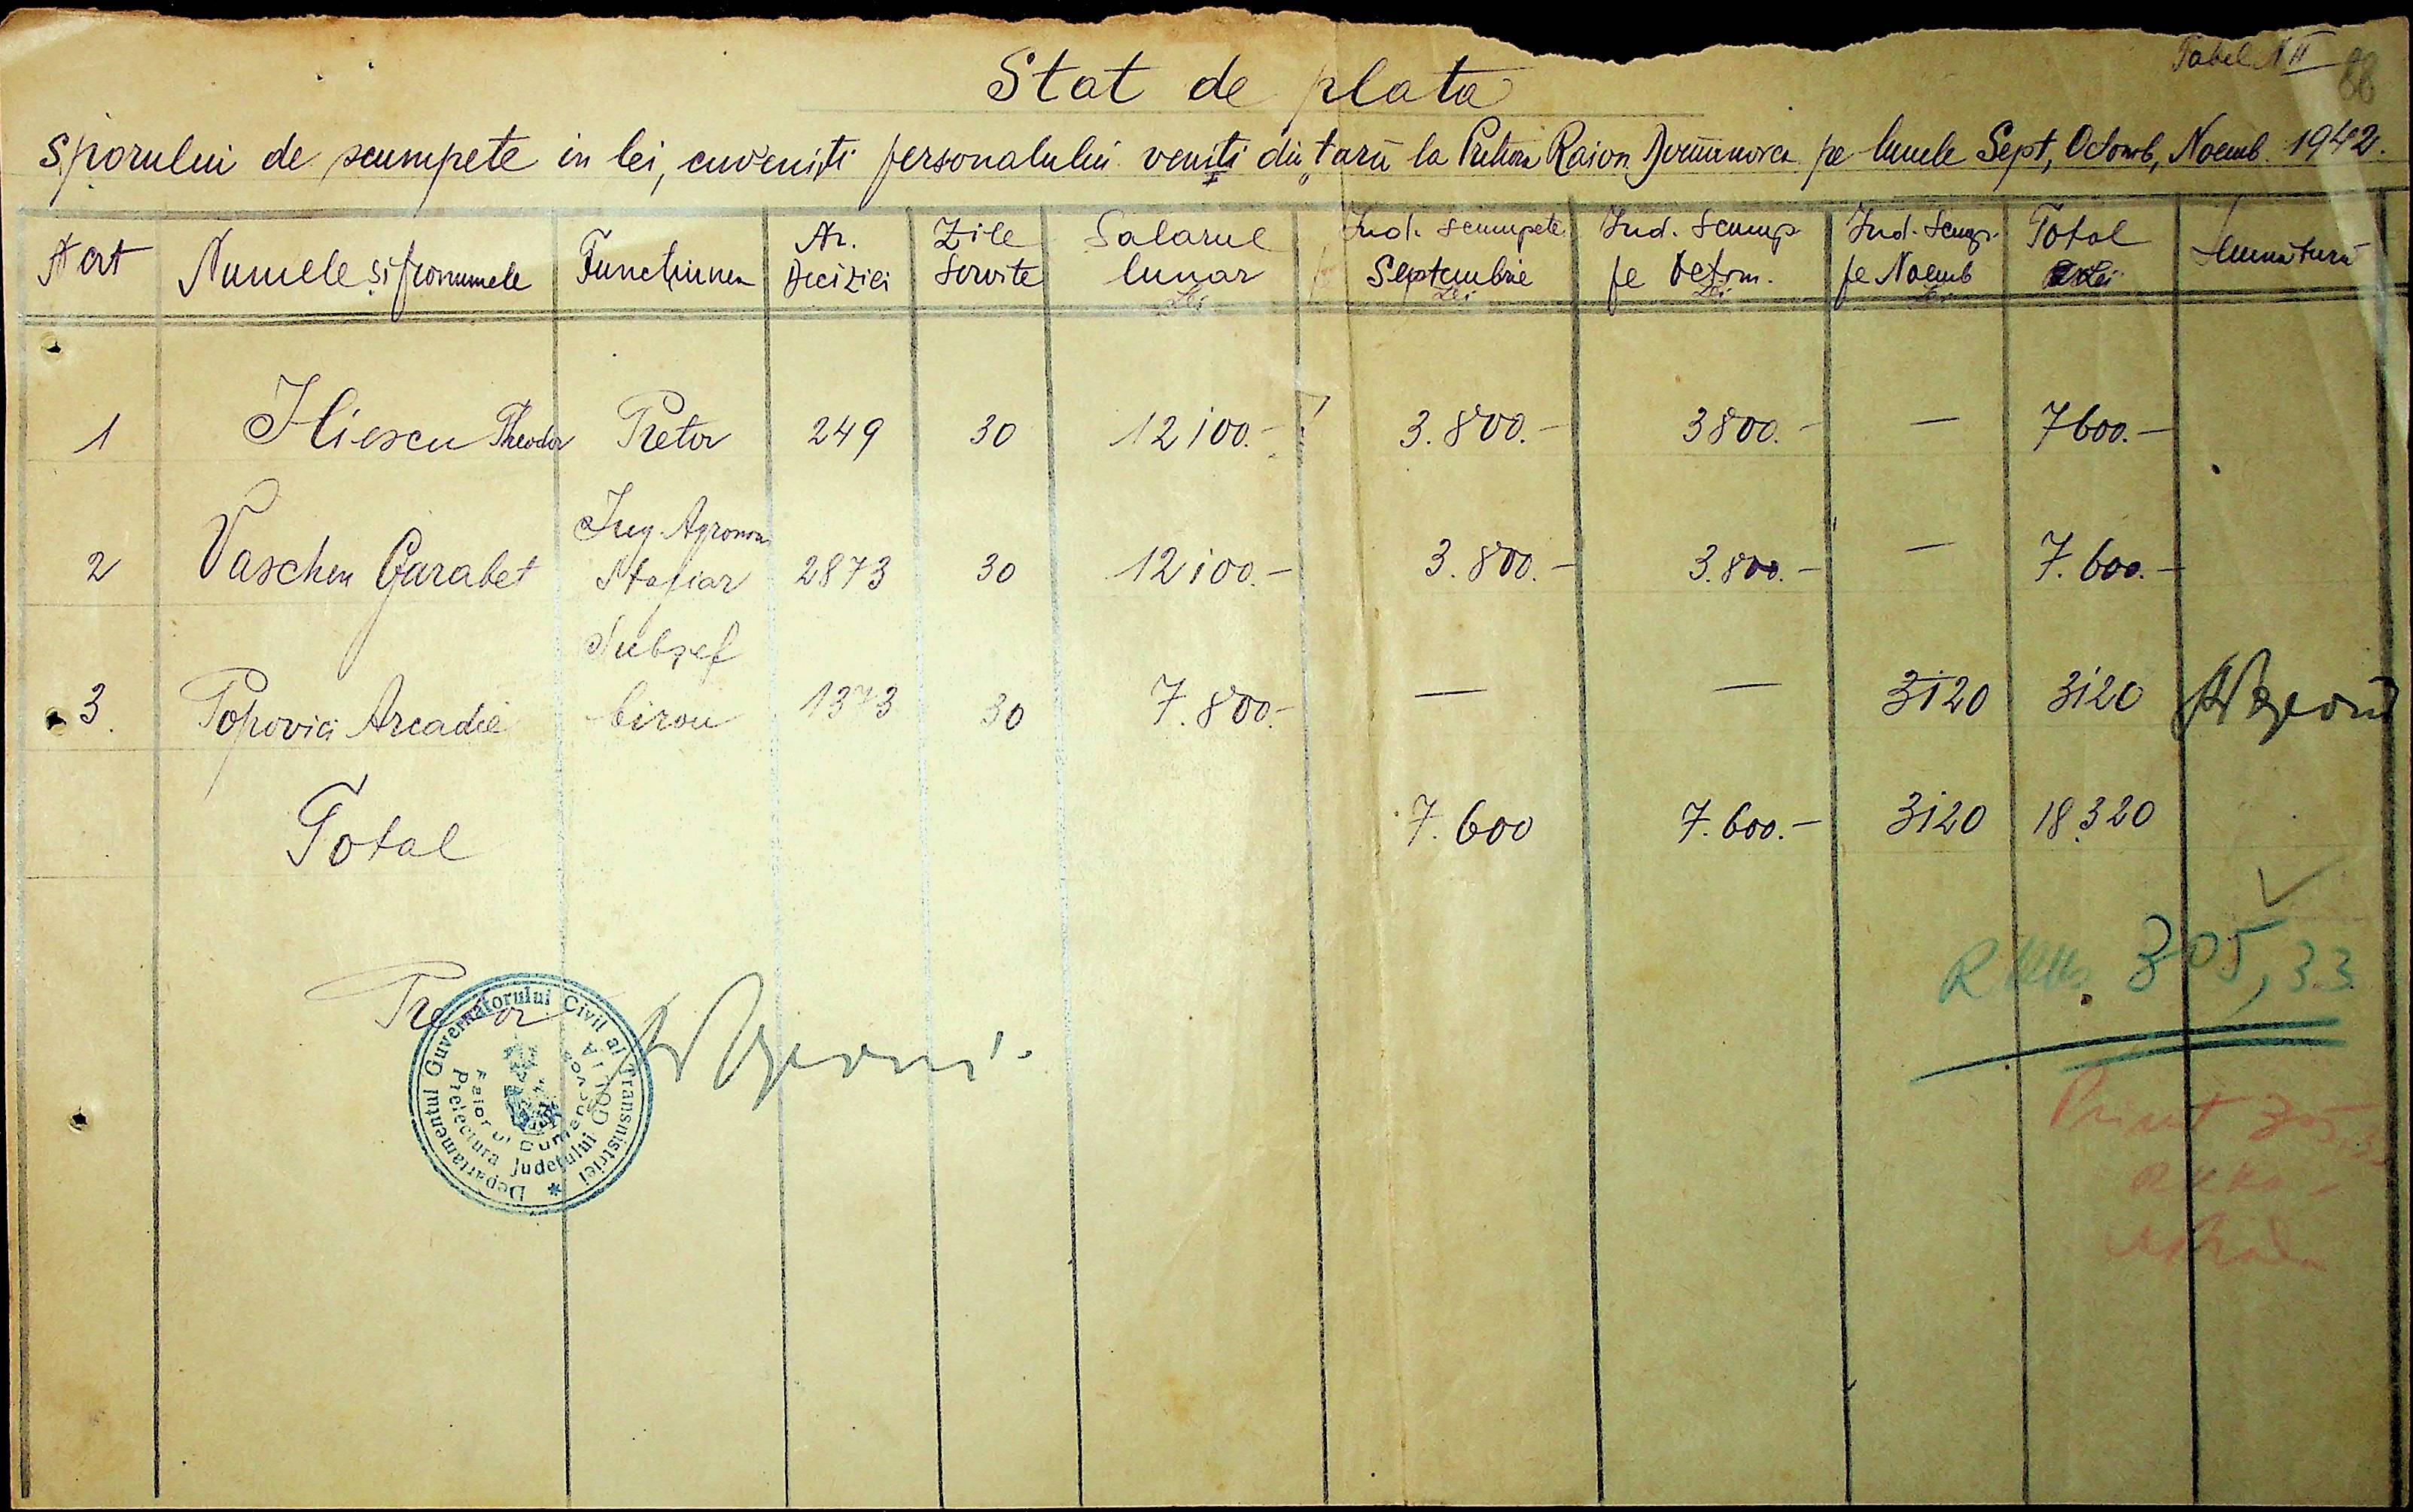 Tabel N II
88
Stat de plata
sporului de scumpete in lei, cuveniți personalului veniți din țară la Pretura Raion Domanovca pe lunele Sept, Octomb, Noemb. 1942.
N crt Numele și pronumele Funcțiunea Nr. Deciziei Zile Servite Salarul lunar Lei Ind. scumpete Septembrie Lei Ind. Scump. pe Octom. Lei Ind. Scump. pe Noemb Lei Total Lei
1 Iliescu Theodor Pretor 249 30 12100.- 3.800.- 3800.- — 7600.-
2 Vaschen Garabet Ing. Agronom Stajiar 2873 30 12100.- 3.800.- 3.800.- — 7.600.-
3. Popovici Arcadie Subșef birou 1373 30 7.800.- — — 3120 3120
Total 7.600 7.600.- 3120 18.320
305,33
Pretor
Departamentul Guvernatorului Civil al Transnistriei
Prefectura Județului GOLTA
Primit 305,33